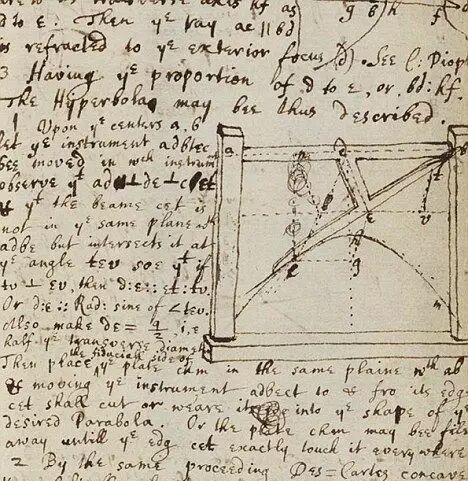 to ye transverse axis hf as
d to e: Then ye ray ac || bd
g b h f
is refracted to ye exterior focus (d). See C: Diopt
3 Having ye proportion of d to e, or, bd: hf.
The Hyperbola may bee thus described.
1 Upon ye centers a, b
let ye instrument adbtec
bee moved in wch instrumt
observe yt ad⊥de⊥cet
& yt the beame cet is
not in ye same plane wth
adbe but intersects it at
ye angle tev soe yt if
tv ⊥ ev, then d:e :: et:tv.
Or d:e :: Rad: sine of ∠tev.
Also make de = q/2 i.e
half ye transverse diameter
the fiduciall side of
Then place ye plate chm in the same plaine wth ab
& moving ye instrument adbect to & fro its edge
cet shall cut or weare it into ye shape of ye
desired Parabola Or the plate chm may bee filed
away untill ye edg cet exactly touch it everywhere
2 By the same proceeding Des=Cartes concave
a d b
e t v
c h g m